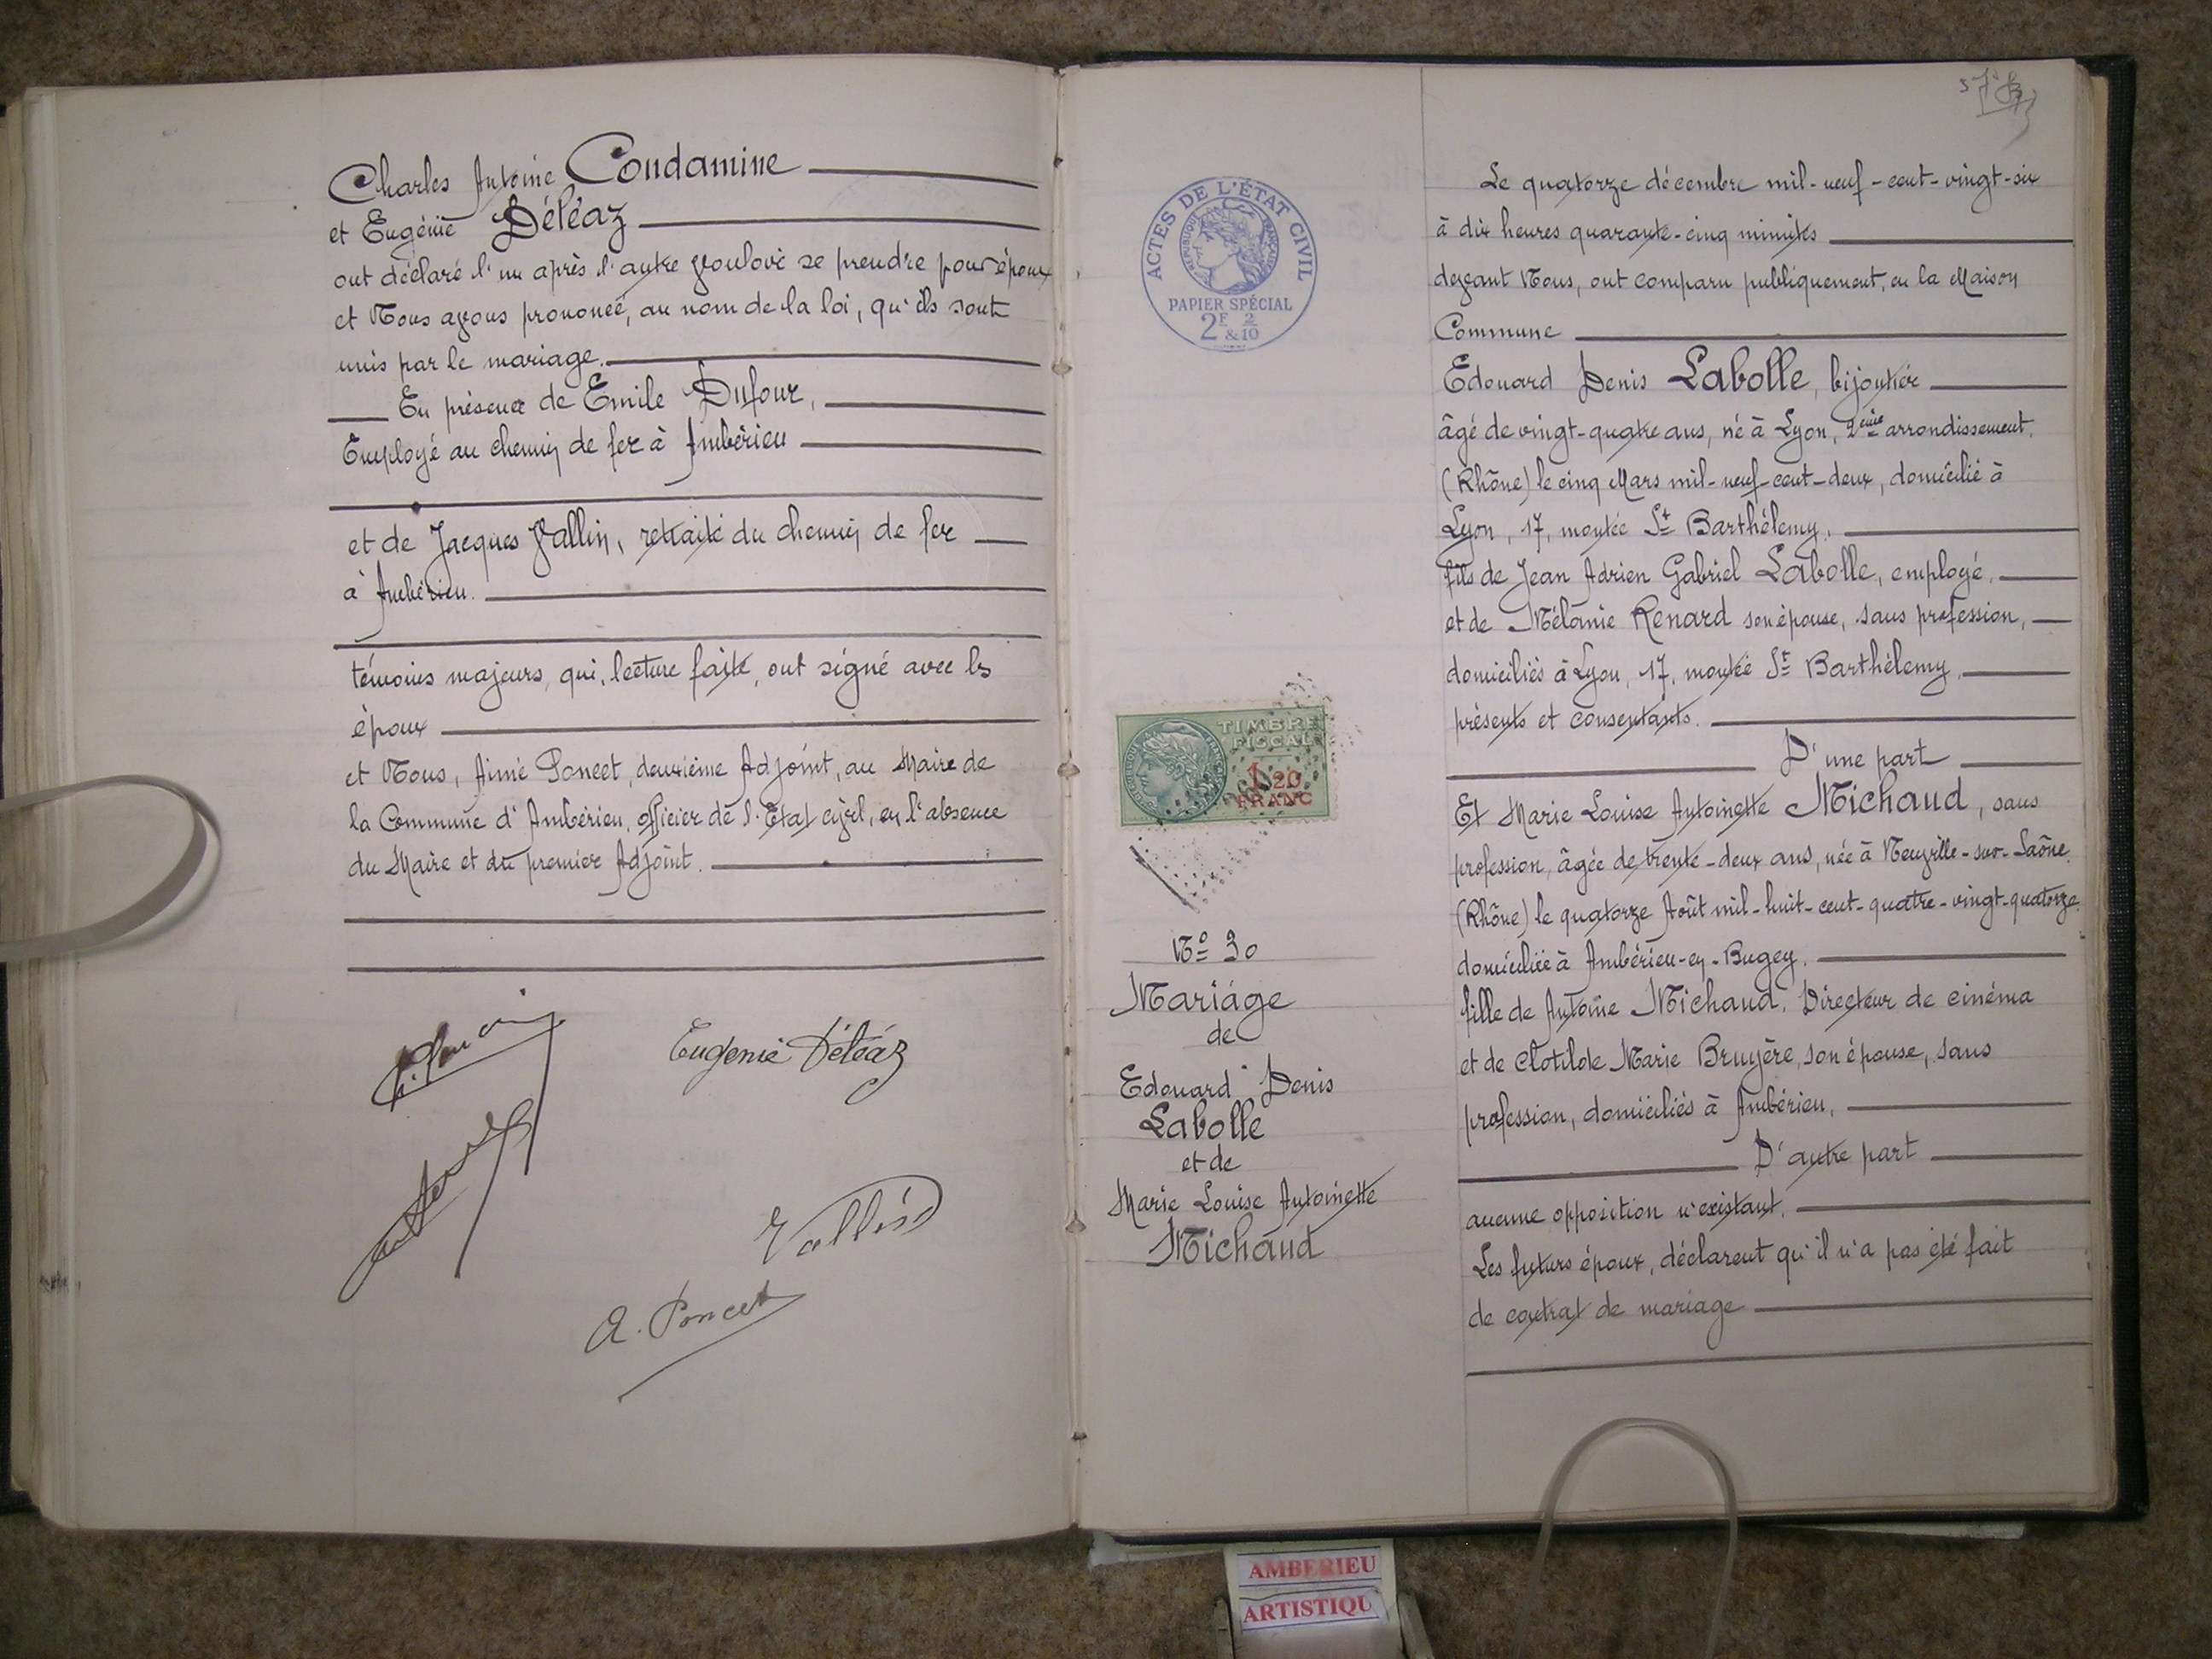 Charles Antoine Condamine
et Eugénie Déléaz
ont déclaré l'un après l'autre vouloir se prendre pour époux
et Nous avons prononcé, au nom de la loi, qu'ils sont
unis par le mariage.
En présence de Emile Dufour,
Employé au chemin de fer à Ambérieu
et de Jacques Vallin, retraité du chemin de fer
à Ambérieu.
témoins majeurs, qui, lecture faite, ont signé avec les
époux
et Nous, Aimé Poncet, deuxième Adjoint, au Maire de
la Commune d'Ambérieu, officier de l'Etat civil, en l'absence
du Maire et du premier Adjoint.
Eugenie Déléaz
Vallin
A. Poncet
ACTES DE L'ÉTAT CIVIL
RÉPUBLIQUE FRANÇAISE
PAPIER SPÉCIAL
2F 2
& 10
TIMBRE
FISCAL
1 20
FRANC
No 30
Mariage
de
Edouard Denis
Labolle
et de
Marie Louise Antoinette
Michaud
Le quatorze décembre mil-neuf-cent-vingt-six
à dix heures quarante-cinq minutes
devant Nous, ont comparu publiquement, en la Maison
Commune
Edouard Denis Labolle, bijoutier
âgé de vingt-quatre ans, né à Lyon, 2ème arrondissement.
(Rhône) le cinq Mars mil-neuf-cent-deux, domicilié à
Lyon, 17, montée St Barthélemy,
fils de Jean Adrien Gabriel Labolle, employé,
et de Mélanie Renard son épouse, sans profession,
domiciliés à Lyon, 17, montée St Barthélemy,
présents et consentants.
D'une part
Et Marie Louise Antoinette Michaud, sans
profession, âgée de trente-deux ans, née à Neuville-sur-Saône
(Rhône) le quatorze Août mil-huit-cent-quatre-vingt-quatorze
domiciliée à Ambérieu-en-Bugey.
fille de Antoine Michaud, Directeur de cinéma
et de Clotilde Marie Bruyère, son épouse, sans
profession, domiciliés à Ambérieu,
D'autre part
aucune opposition n'existant.
Les futurs époux, déclarent qu'il n'a pas été fait
de contrat de mariage
AMBERIEU
ARTISTIQU